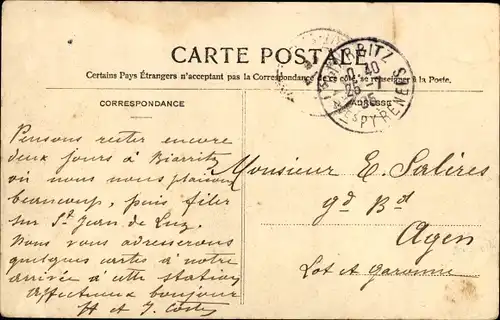 CARTE POSTALE
Certains Pays Étrangers n'acceptant pas la Correspondance de ce côté, se renseigner à la Poste.
BIARRITZ
Bses PYRENEES
CORRESPONDANCE
ADRESSE
Pensons rester encore
deux jours à Biarritz
où nous nous plaisons
beaucoup, puis filer
sur St Jean de Luz.
Nous vous adresserons
quelques cartes à notre
arrivée à cette station
Affectueux bonjour
et J.
Monsieur E. Salères
gd Bd
Agen
Lot et Garonne